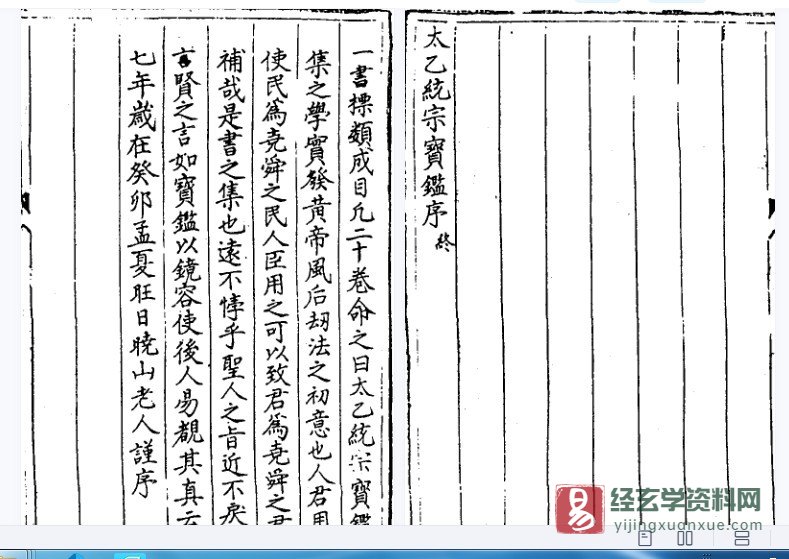 太乙統宗寶鑑序 終
一書摽類成目凢二十卷命之曰太乙統宗寶鑑
集之學實發黃帝風后刼法之初意也人君用
使民爲堯舜之民人臣用之可以致君爲堯舜之君
補哉是書之集也遠不悖乎聖人之旨近不戾
言賢之言如寶鑑以鏡容使後人昜覩其真云
七年歲在癸卯孟夏旺日曉山老人謹序
易
经玄学资料网
yijingxuanxue.com